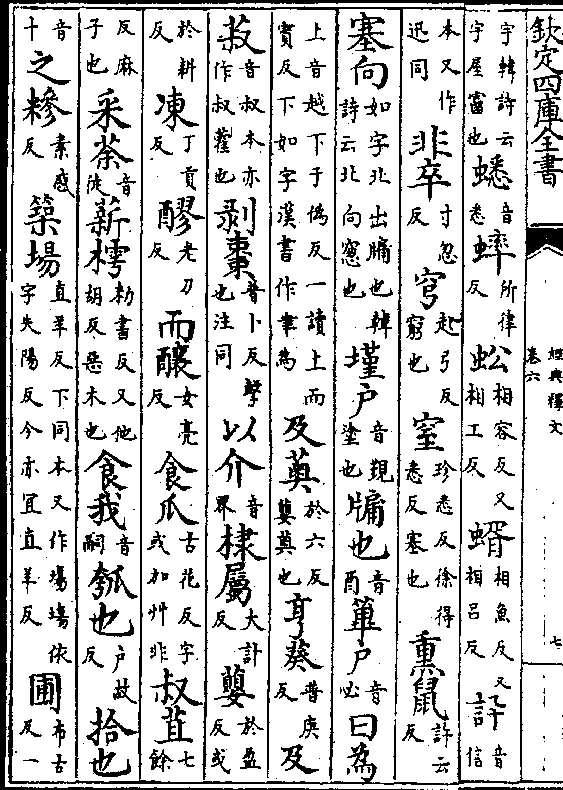 欽定四庫全書
經典釋文
卷六
七
宇韓詩云宇屋霤也蟋音悉蟀所律反蚣相容反又相工反蝑相魚反又相呂反訐音信
本又作迅同非卒寸忽反穹起弓反窮也窒珍悉反徐得悉反塞也熏鼠許云反
塞向如字北出牖也韓詩云北向窻也墐戶音覲塗也牖也音酉篳戶音必曰為
上音越下于偽反一讀上而實反下如字漢書作聿為及薁於六反蘡薁也亨葵普庚反及
菽音叔本亦作叔藿也剥棗音卜反擊也注同以介音界棣屬大計反蘡於盈反或
於耕反凍丁貢反醪老刀反而釀女亮反食瓜古花反字或加艸非叔苴七餘
反麻子也采荼音徒薪樗勑書反又他胡反惡木也食我音嗣瓠也戶故反拾也
音十之糝素感反築場直羊反下同本又作塲塲依字失陽反今亦宜直羊反圃布古反一